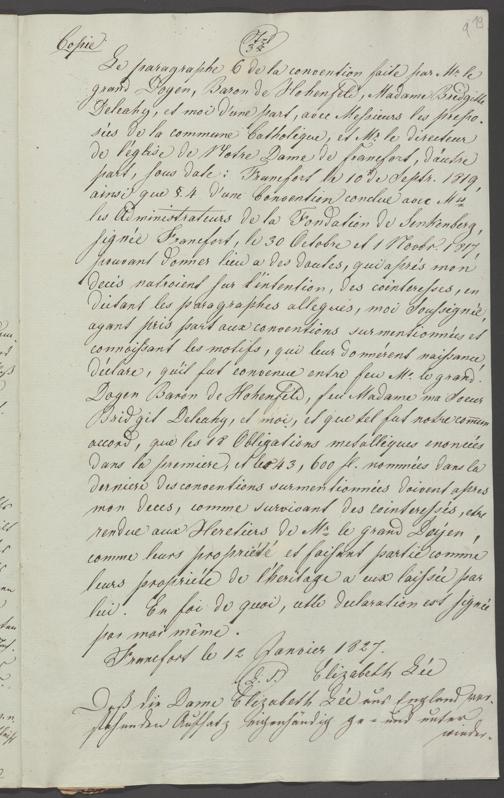 19
Copie
Le paragraphe 6 de la convention faite par Mr. le
grand Doyen, Baron de Hohenfeld, Madame Bridgitte
Deleahy, et moi d'une part, avec Messieurs les prepo-
sées de la commune Catholique, et Mr. le directeur
de l'église de Notre Dame de francfort, d'autre
part, sous date: Francfort le 10 de Septr. 1819,
ainsi que § 4 d'une Convention conclue avec Mrs.
les Administrateurs de la Fondation de Senkenberg,
signée Francfort, le 30 Octobre et 1 Novbr. 1817,
pouvant donner lieu a des doutes, qui aprés mon
decés natroient sur l'intention, des cointeresses, en
dictant les paragraphes allegués, moi soussignée,
ayant pris part aux conventions surmentionnées et
connoissant les motifs, qui leur donnerent naissance,
déclare, qu'il fut convenue entre feu Mr. le grand.
Doyen Baron de Hohenfeld, feu Madame ma Soeur
Bridgit Deleahy, et moi, et que tel fut notre comun
accord, que les 18 Obligations metalliques enoncées
dans la premiere, et les 43,600 fl. nommées dans la
derniere des conventions surmentionnées doivent apres
mon deces, comme survivant des cointeressés, etre
rendue aux Heretiers de Mr. le grand Doyen,
comme leurs propriété et faisant partie comme
leurs propriete de l'heritage a eux laissée par
lui. En foi de quoi, cette declaration est signée
par moi même.
Francfort le 12 Janvier 1827.
(L. S.) Elizabeth Lée
Daß die Dame Elizabeth Lée aus England vor-
stehenden Aufsatz eigenhändig ge- und unter